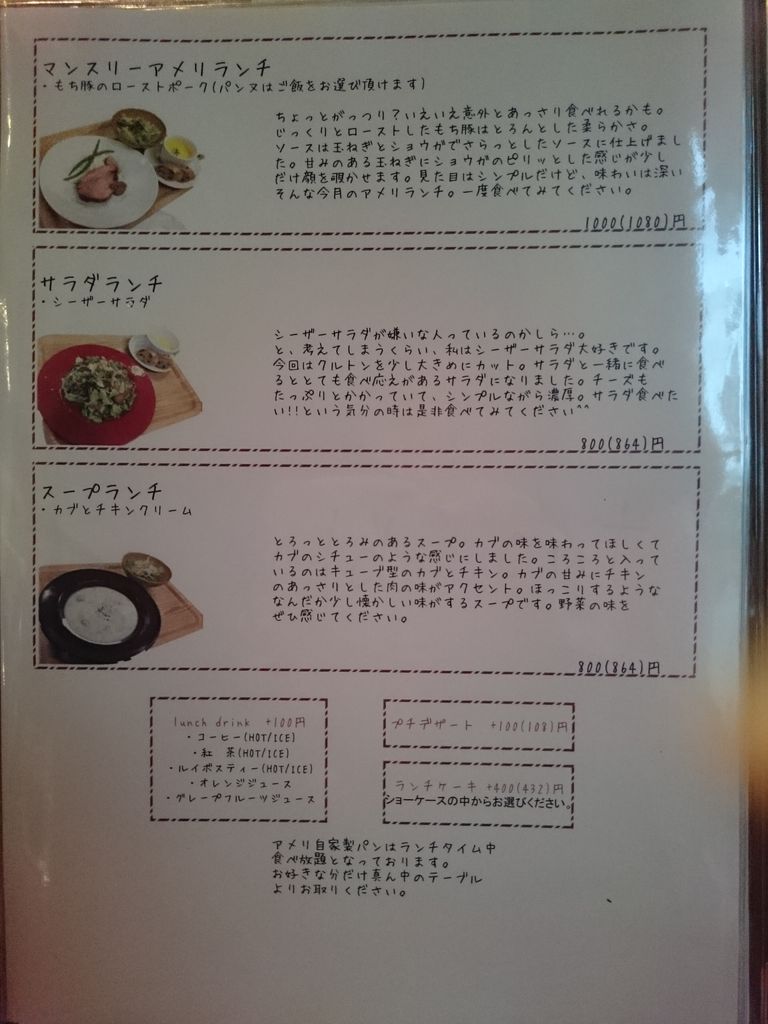 マンスリーアメリランチ
・もち豚のローストポーク(パン又はご飯をお選び頂けます)
ちょっとがっつり?いえいえ意外とあっさり食べれるかも。
じっくりとローストしたもち豚はとろんとした柔らかさ。
ソースは玉ねぎとショウガでさらっとしたソースに仕上げまし
た。甘みのある玉ねぎにショウガのピリッとした感じが少し
だけ顔を覗かせます。見た目はシンプルだけど、味わいは深い
そんな今月のアメリランチ。一度食べてみてください。
1000(1080)円
サラダランチ
・シーザーサラダ
シーザーサラダが嫌いな人っているのかしら…。
と、考えてしまうくらい、私はシーザーサラダ大好きです。
今回はクルトンを少し大きめにカット。サラダと一緒に食べ
るととても食べ応えがあるサラダになりました。チーズも
たっぷりとかかっていて、シンプルながら濃厚。サラダ食べた
い!!という気分の時は是非食べてみてください^^
800(864)円
スープランチ
・カブとチキンクリーム
とろっととろみのあるスープ。カブの味を味わってほしくて
カブのシチューのような感じにしました。ころころと入って
いるのはキューブ型のカブとチキン。カブの甘みにチキン
のあっさりとした肉の味がアクセント。ほっこりするような
なんだか少し懐かしい味がするスープです。野菜の味を
ぜひ感じてください。
800(864)円
lunch drink +100円
・コーヒー(HOT/ICE)
・紅 茶(HOT/ICE)
・ルイボスティー(HOT/ICE)
・オレンジジュース
・グレープフルーツジュース
プチデザート +100(108)円
ランチケーキ +400(432)円
ショーケースの中からお選びください。
アメリ自家製パンはランチタイム中
食べ放題となっております。
お好きな分だけ真ん中のテーブル
よりお取りください。